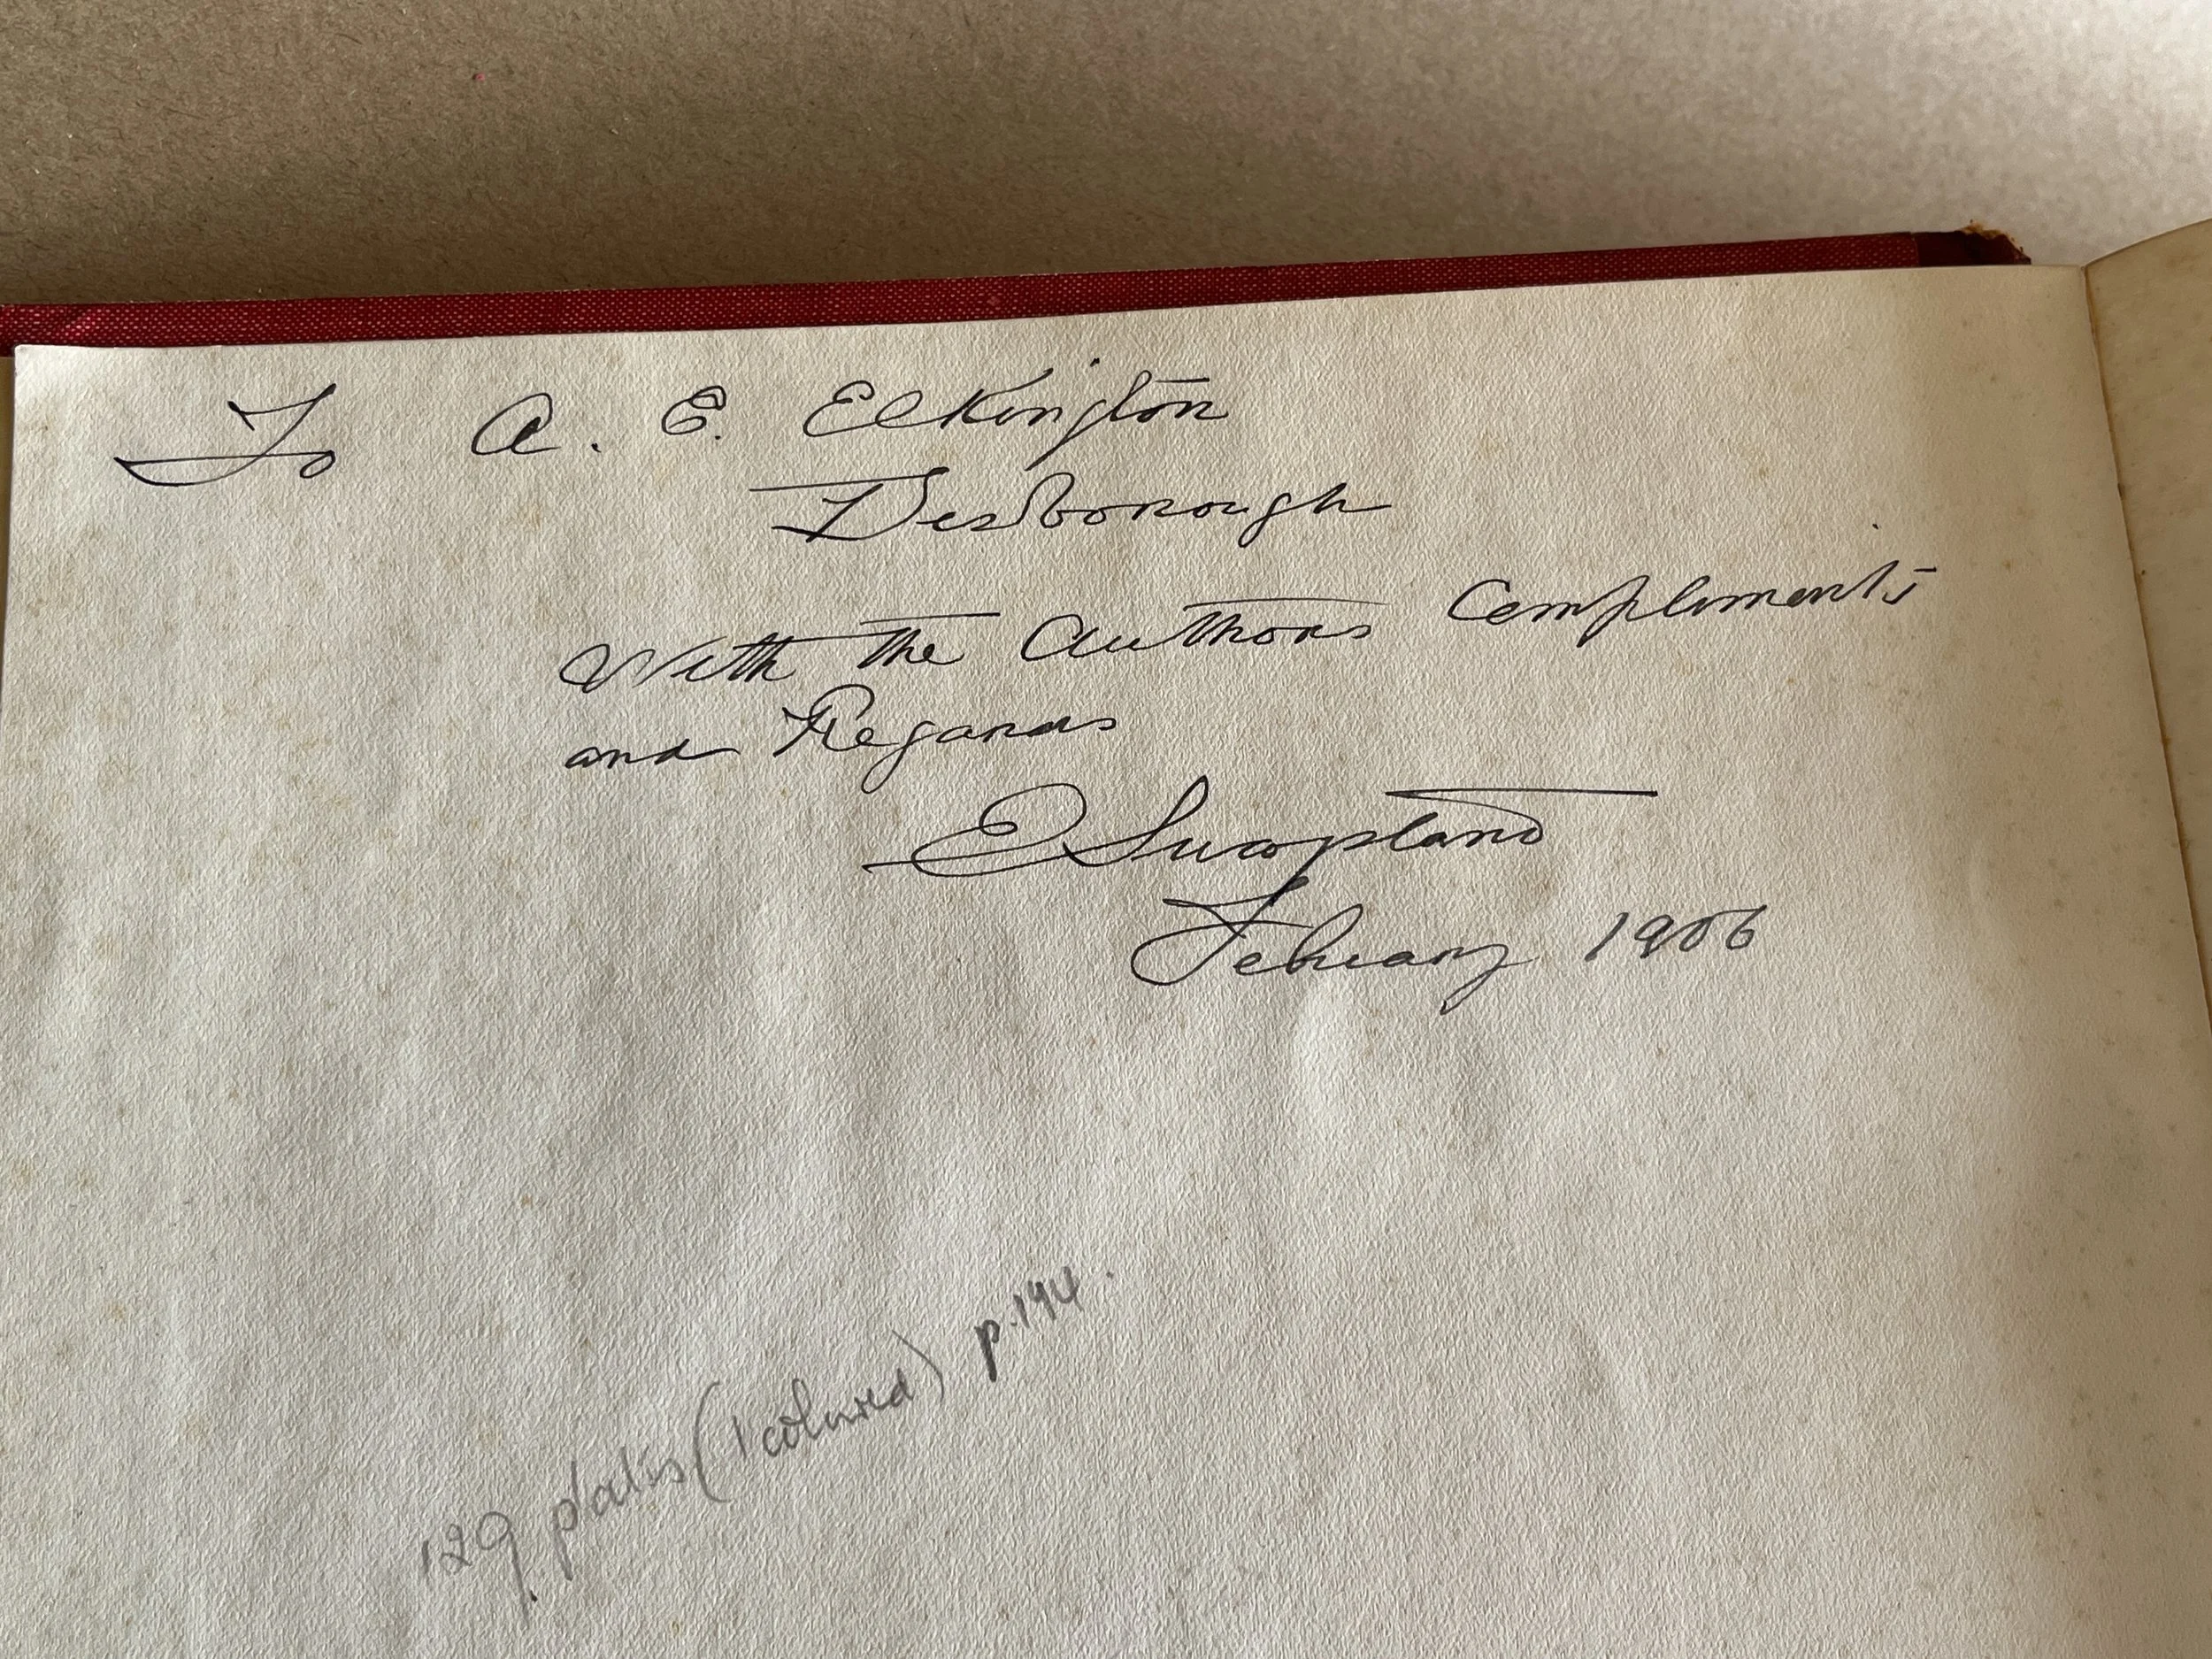 To A. E. Elkington
Desborough
With the Authors Compliments
and Regards
E Swapland
February 1906
129 plates (1 coloured) p.194.